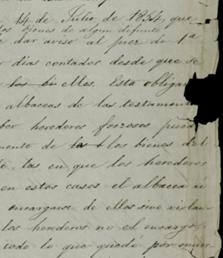 14 de Julio de 1834, que
los bienes de algun difunto
dar aviso al juez de 1ª
dias contados desde que se
los bi ellos. Esta obliga
albaceas de las testament
herederos forzosos pue
mento de los bienes del
las en que los herederos
en estos casos el albacea
encargarse de ellos
los herederos no el encargo
todo lo que quede por